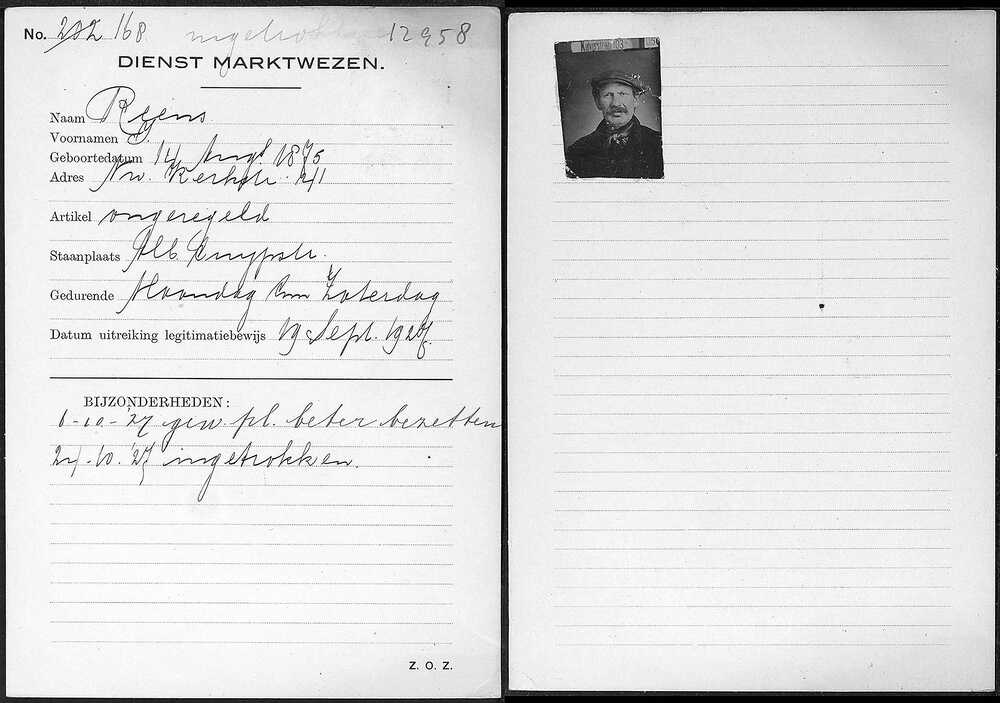 No. 282 168 ingetrokken 12958
DIENST MARKTWEZEN.
Naam Reens
Voornamen J.
Geboortedatum 14 Aug. 1875
Adres Nw. Kerkstr. 141
Artikel ongeregeld
Staanplaats Alb. Cuypstr.
Gedurende Maandag t/m Zaterdag
Datum uitreiking legitimatiebewijs 19 Sept. 1927.
BIJZONDERHEDEN:
6-10-'27 gew. pl. beter bezetten
24-10.'27 ingetrokken.
Z. O. Z.